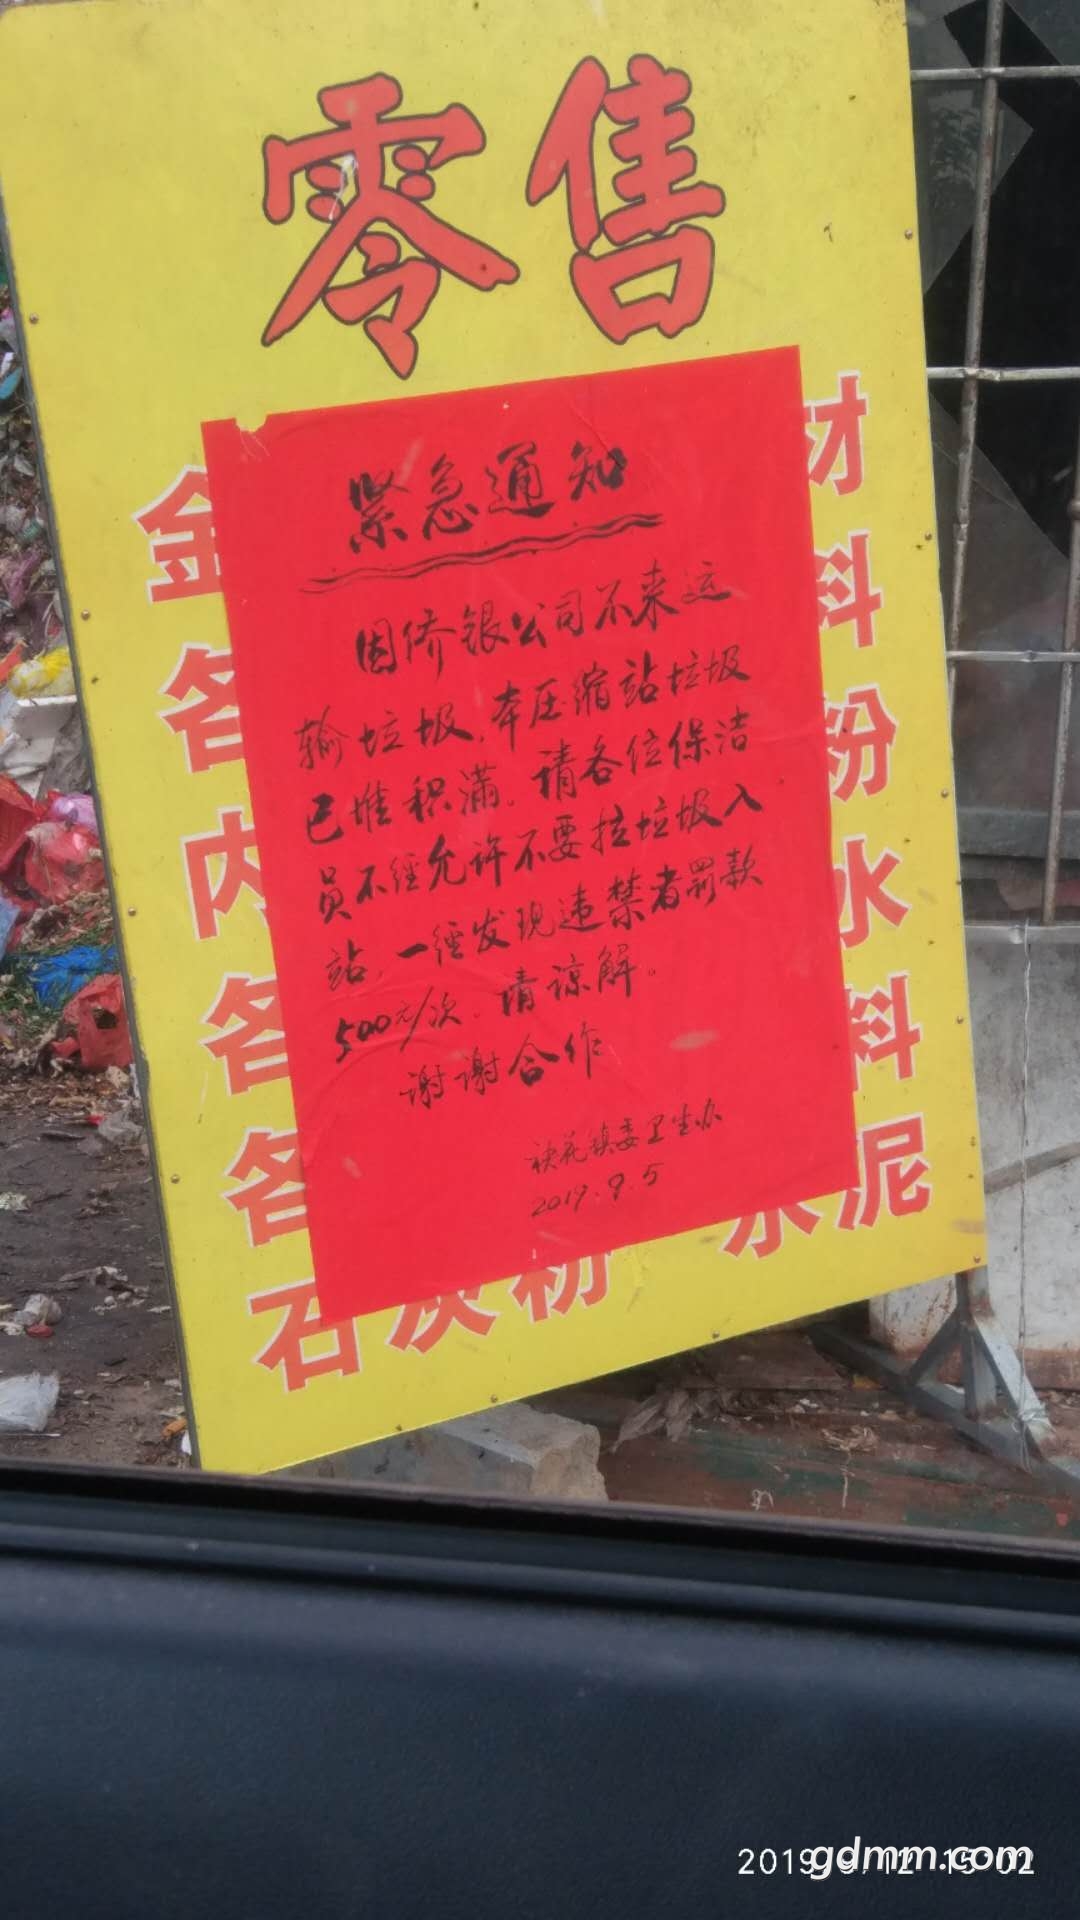 零售
紧急通知
因侨银公司不来运
输垃圾,本压缩站垃圾
已堆积满。请各位保洁
员不经允许不要拉垃圾入
站,一经发现违禁者罚款
500元/次。请谅解。
谢谢合作
袂花镇委卫生办
2019.9.5
金
材
各
料
内
粉
各
水
各
料
石灰粉 水泥
gdmm.com